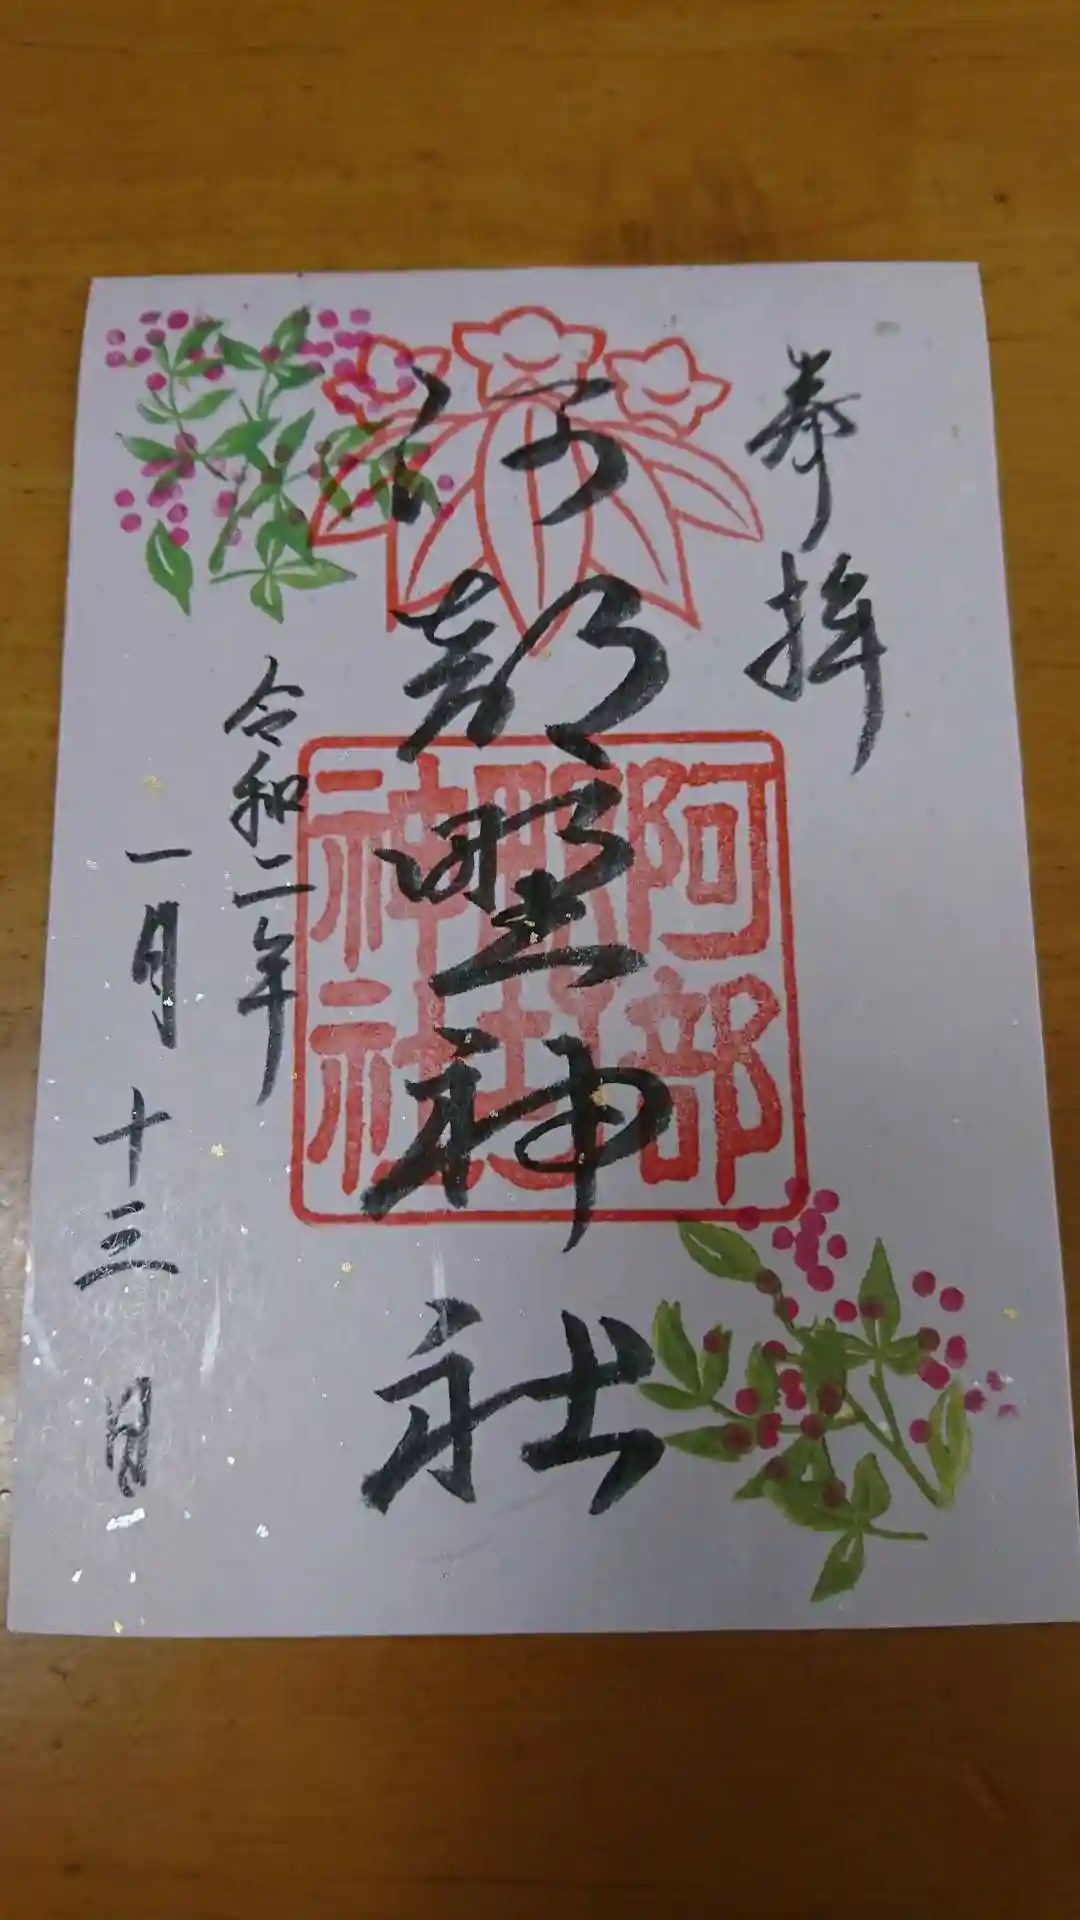 奉拝
阿部野神社
阿部
野神社
神社
令和二年
一月十三日